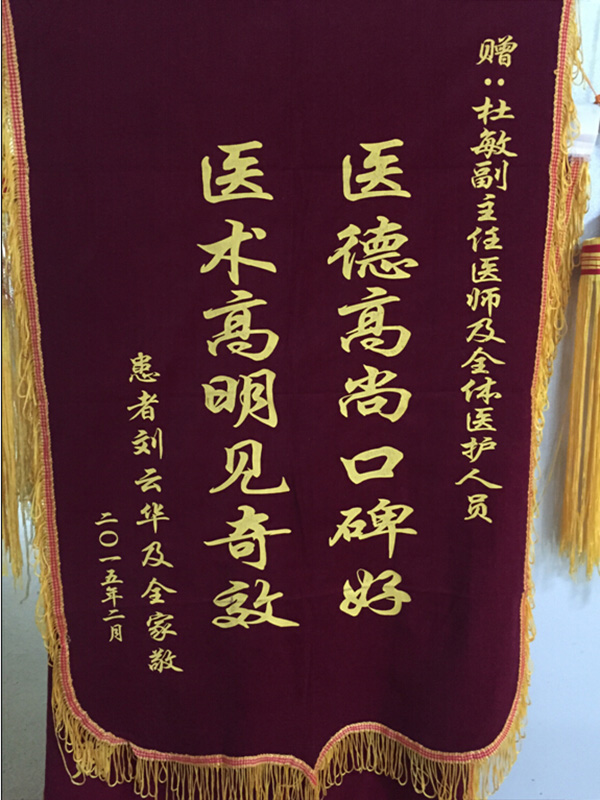 赠：杜敏副主任医师及全体医护人员
医德高尚口碑好
医术高明见奇效
患者刘云华及全家敬
二〇一五年二月